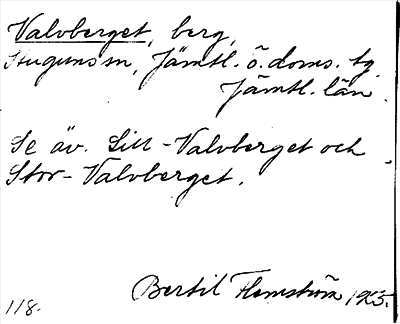 Valvberget, berg,
Stuguns sn, Jämtl. ö. doms. tg
Jämtl. län.
Se äv. Lill-Valvberget och
Stor-Valvberget.
Bertil Flemström 1925.
118.